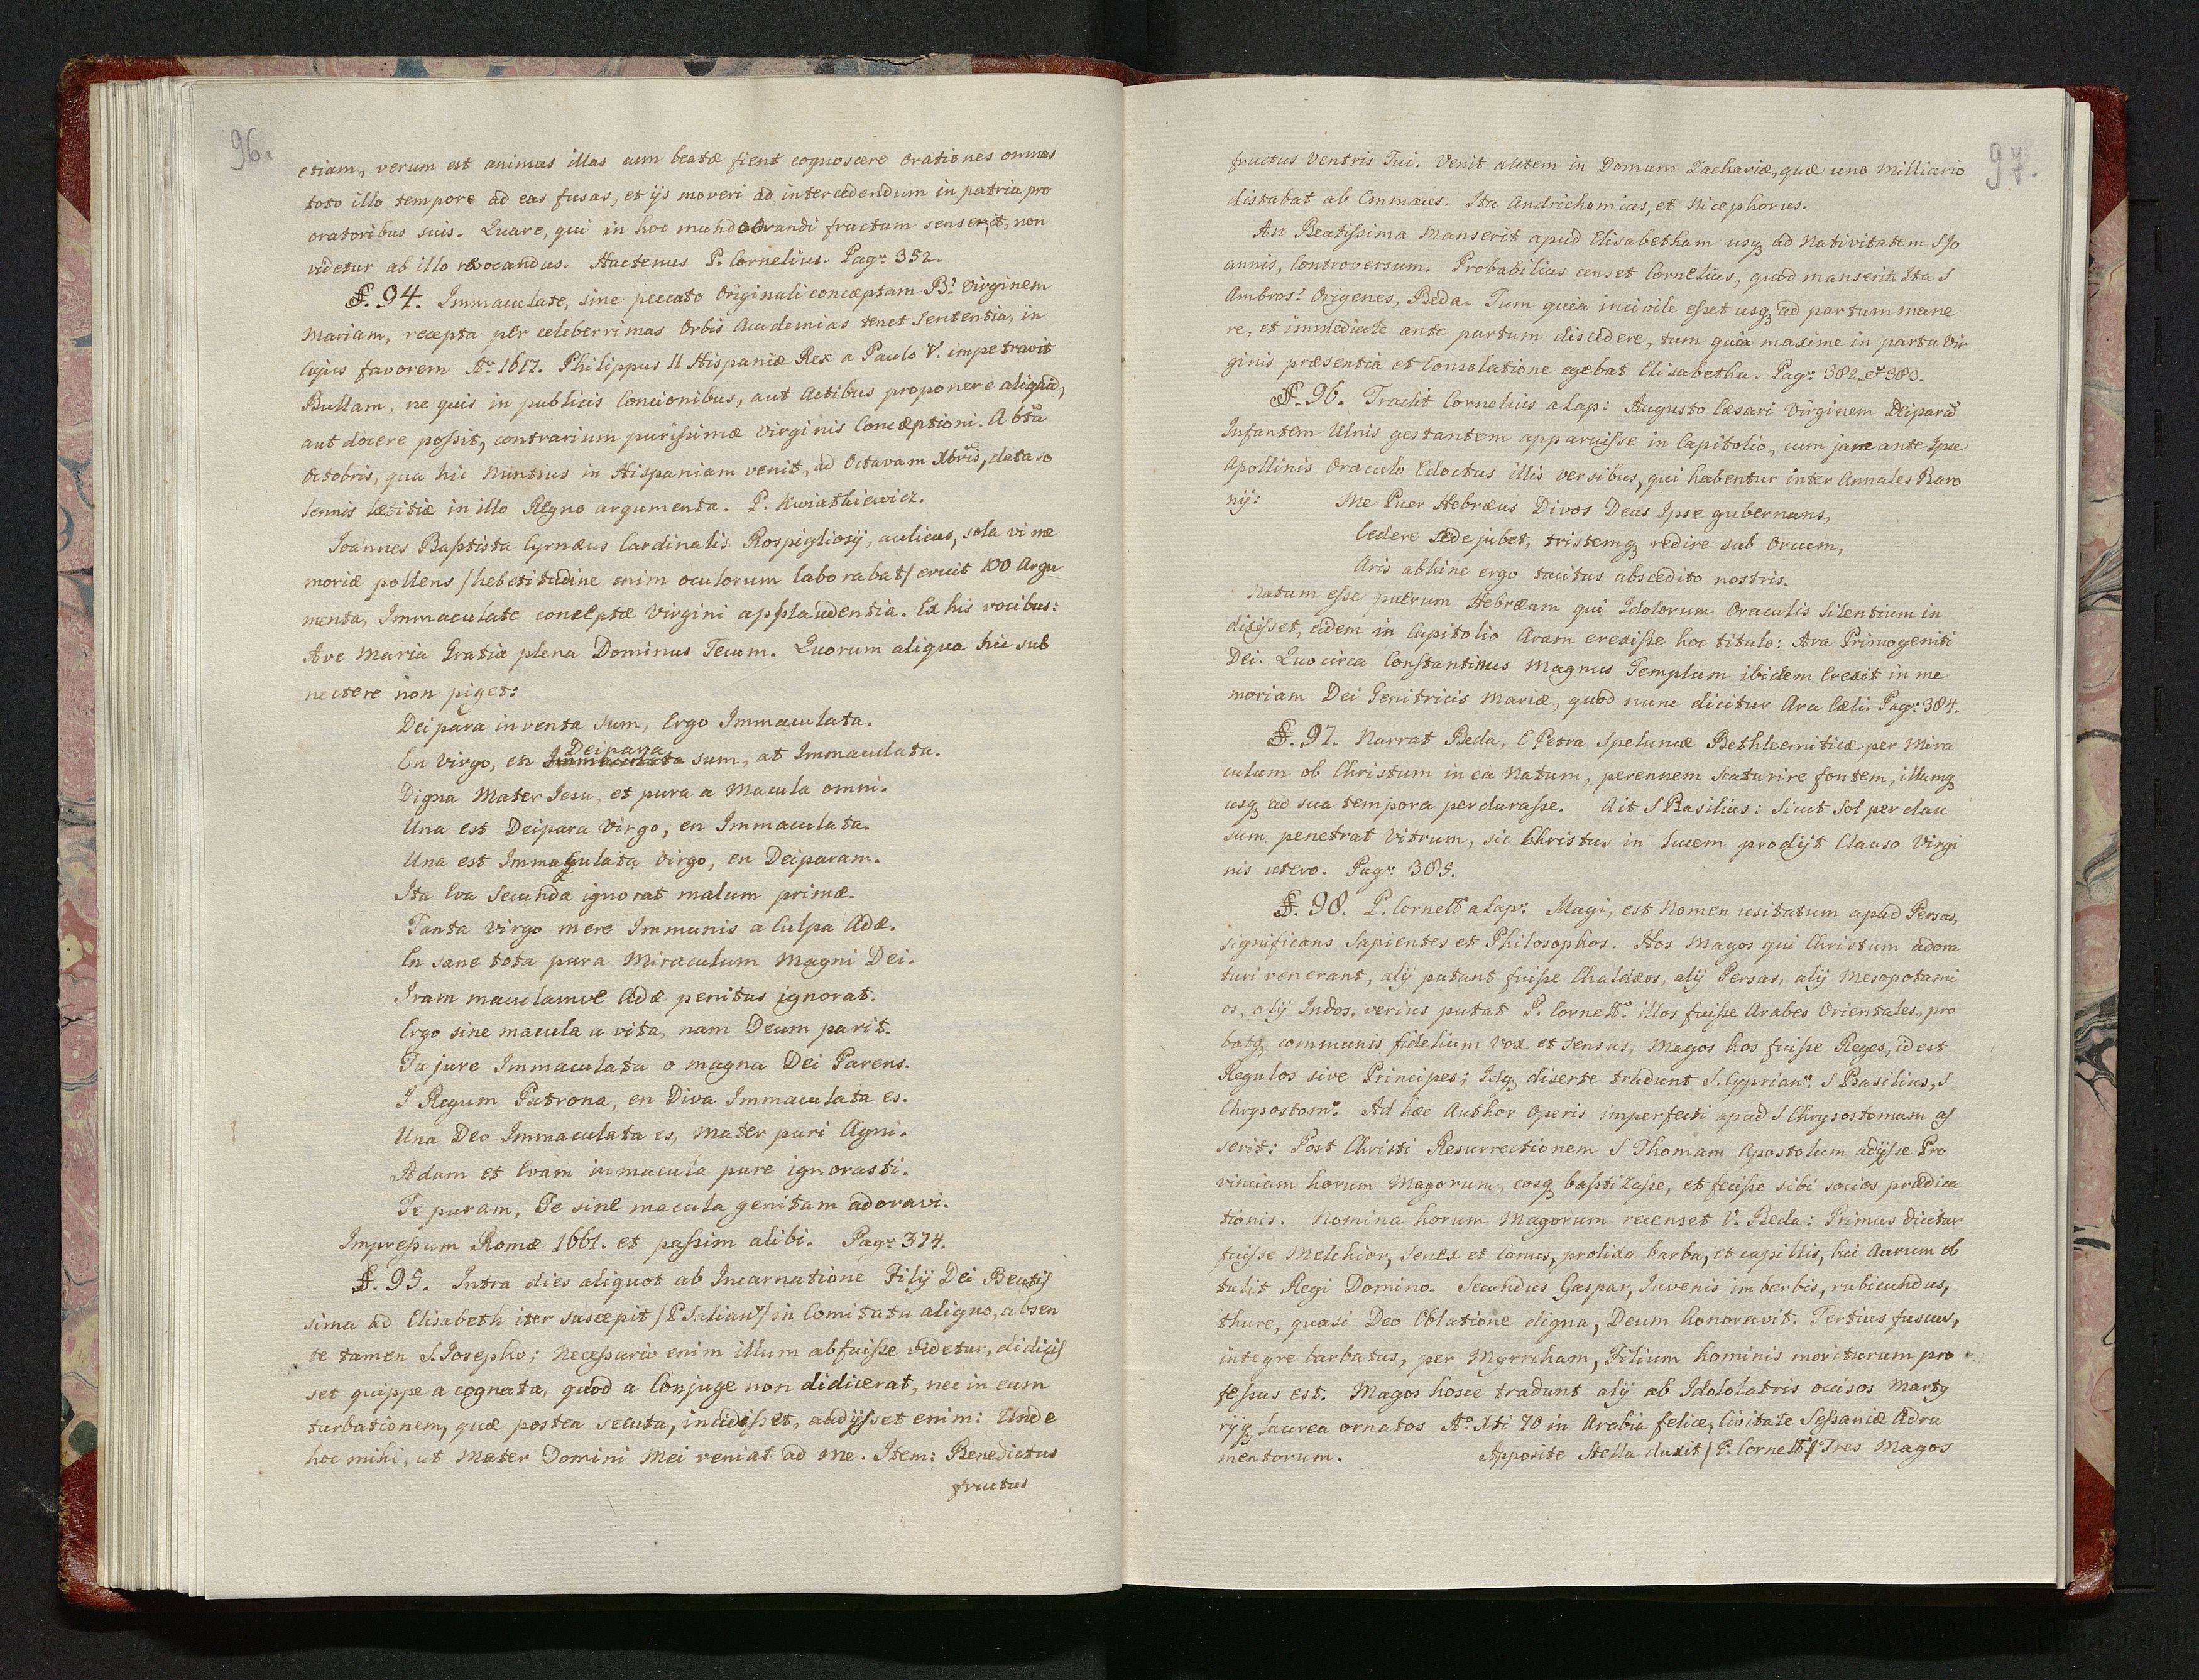 96.
etiam, verum est animas illas cum beatæ fient cognoscere orationes omnes
toto illo tempore ad eas fusas, et ijs moveri ad intercedendum in patria pro
oratoribus suis. Quare, qui in hoc mundo orandi fructum senserit, non
videtur ab illo revocandus. Hactenus P. Cornelius. Pagᵃ 352.
§. 94. Immaculate, sine peccato Originali conceptam B. Virginem
Mariam, recepta per celeberrimas Orbis Academias tenet Sententia, in
Cujus favorem Aº 1617. Philippus II Hispaniæ Rex a Paulo V. impetravit
Bullam, ne quis in publicis Concionibus, aut Actibus proponere aliquid,
aut docere poſsit, contrarium puriſsimæ Virginis Conceptioni. A 6ta
Octobris, qua hic Nuntius in Hispaniam venit, ad Octavam Xbris, data so
lennis lætitiæ in illo Regno argumenta. P. Kwiatkiewicz.
Joannes Baptista Cyrnæus Cardinalis Rospigliosij, aulicus, sola vi me
moriæ pollens /hebetitudine enim oculorum laborabat/ eruit 100 Argu
menta, Immaculate conceptæ Virgini applaudentia. Ex his vocibus:
Ave Maria Gratia plena Dominus Tecum. Quorum aliqua hic sub
nectere non piget:
Deipara inventa sum, Ergo Immaculata.
En Virgo, en Deipara sum, at Immaculata.
Digna Mater Jesu, et pura a Macula omni.
Una est Deipara Virgo, en Immaculata.
Una est Immaculata Virgo, en Deiparam.
Ita Eva Secunda ignorat malum primæ.
Tanta Virgo mere Immunis a Culpa Adæ.
En sane tota pura Miraculum Magni Dei.
Iram maculamve Adæ penitus ignorat.
Ergo sine macula a vita, nam Deum parit.
Tu jure Immaculata o magna Dei Parens.
I Regum Patrona, en Diva Immaculata es.
Una Deo Immaculata es, Mater puri Agni.
Adam et Evam in macula pure ignorasti.
Te puram, Te sine macula genitam adoravi.
Impreſsum Romæ 1661. et paſsim alibi. Pagᵃ 374.
§. 95. Intra dies aliquot ab Incarnatione Filij Dei Beatiſ
sima ad Elisabeth iter suscepit /P. Salianꝰ/ in Comitatu aliquo, absen
te tamen S. Josepho; Neceſsario enim illum abfuiſse videtur, didiciſ
set quippe a cognata, quod a Conjuge non didicerat, nec in eam
turbationem, quæ postea secuta, incidiſset, audijſset enim: Unde
hoc mihi, ut Mater Domini Mei veniat ad me. Item: Benedictus
fructus
97.
fructus Ventris Tui. Venit autem in Domum Zachariæ, quæ uno Milliario
distabat ab Emmaus. Ita Andrichomius, et Nicephorus.
An Beatiſsima Manserit apud Elisabetham usqꝫ ad Nativitatem S Jo
annis, Controversum. Probabilius censet Cornelius, quod manserit. Ita S
Ambros: Origenes, Beda. Tum quia incivile eſset usqꝫ ad partum mane
re, et immediate ante partum discedere, tum quia maxime in partu Vir
ginis præsentia et Consolatione egebat Elisabetha. Pagᵃ 382. et 383.
§. 96. Tradit Cornelius a Lap: Augusto Cæsari Virginem Deiparam
Infantem Ulnis gestantem apparuiſse in Capitolio, cum jam ante Ipse
Apollinis Oraculo Edoctus illis versibus, qui habentur inter Annales Baro
nij: Me Puer Hebræus Divos Deus Ipse gubernans,
Cedere sede jubet, tristemqꝫ redire sub Orcum,
Aris abhinc ergo tacitus abscedito nostris.
Natum eſse puerum Hebræum qui Idolorum Oraculis Silentium in
dixiſset, eidem in Capitolio Aram erexiſse hoc titulo: Ara Primogeniti
Dei. Quocirca Constantinus Magnus Templum ibidem Erexit in me
moriam Dei Genitricis Mariæ, quod nunc dicitur Ara Cæli. Pagᵃ 384.
§. 97. Narrat Beda, E Petra Speluncæ Bethleemiticæ per Mira
culum ob Christum in ea Natum, perennem scaturire fontem, illumqꝫ
usqꝫ ad sua tempora perduraſse. Ait S Basilius: Sicut Sol per clau
sum penetrat Vitrum, sic Christus in Lucem prodijt Clauso Virgi
nis utero. Pagᵃ 385.
§. 98. P. Cornelꝰ a Lapᵉ. Magi, est Nomen usitatum apud Persas,
significans Sapientes et Philosophos. Hos Magos qui Christum adora
turi venerant, alij putant fuiſse Chaldæos, alij Persas, alij Mesopotami
os, alij Indos, verius putat P. Cornelꝰ. illos fuiſse Arabes Orientales, pro
batqꝫ communis fidelium vox et sensus, Magos hos fuiſse Reges, id est
Regulos sive Principes; Idqꝫ diserte tradunt S. Cyprianꝰ. S Basilius, S
Chrysostomꝰ. Ad hæc Author Operis imperfecti apud S Chrysostomum aſ
serit: Post Christi Resurrectionem S Thomam Apostolum adijſse Pro
vinciam horum Magorum, eosqꝫ baptizaſse, et feciſse sibi socios prædica
tionis. Nomina horum Magorum recenset V. Beda: Primus dicitur
fuiſse Melchior, Senex et Canus, prolixa barba, et capillis, hic Aurum ob
tulit Regi Domino. Secundus Gaspar, Juvenis imberbis, rubicundus,
thure, quasi Deo Oblatione digna, Deum honoravit. Tertius fuscus,
integre barbatus, per Myrrham, Filium hominis moriturum pro
feſsus est. Magos hosce tradunt alij ab Idololatris occisos Marty
rijqꝫ laurea ornatos Aº. Xti 70 in Arabia felice, Civitate Seſsaniæ Adru
mentorum. Apposite Stella duxit /P. Cornelꝰ/ Tres Magos